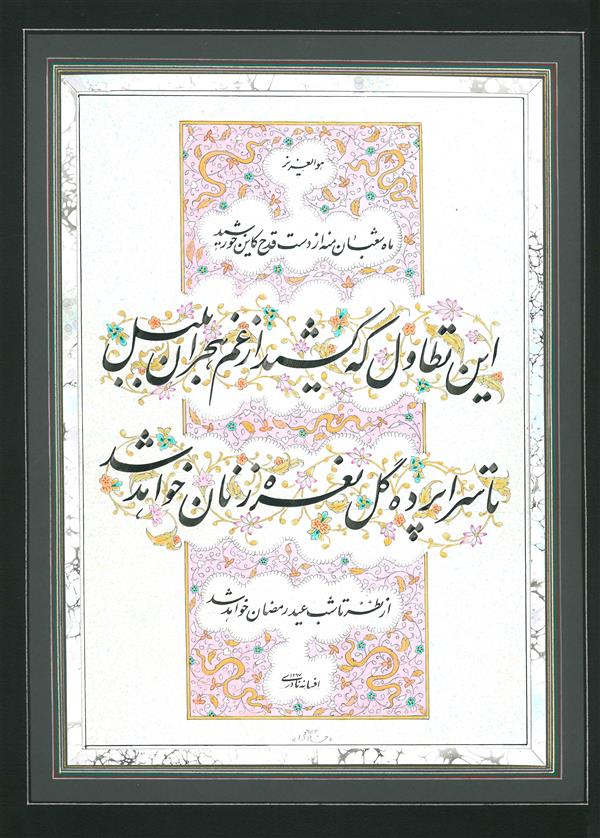 هوالعزیز
ماه شعبان منه از دست قدح کاین خورشید
این تطاول که کشید از غم هجران بلبل
تا سراپرده گل نعره زنان خواهد شد
از نظر تا شب عید رمضان خواهد شد
افسانه نادری